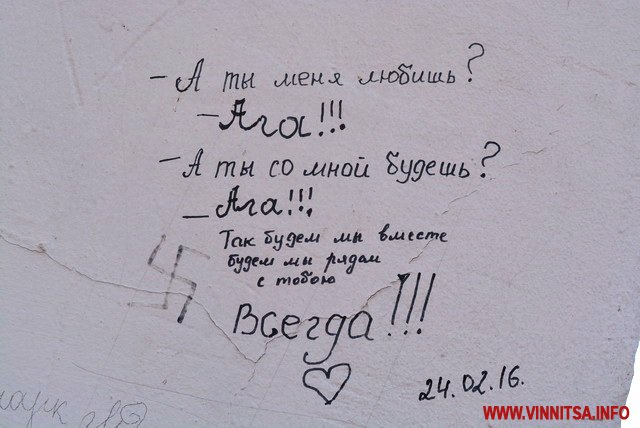 – А ты меня любишь?
– Ага!!!
– А ты со мной будешь?
– Ага!!!
Так будем мы вместе
будем мы рядам
с тобою
Всегда!!!
24.02.16.
WWW.VINNITSA.INFO